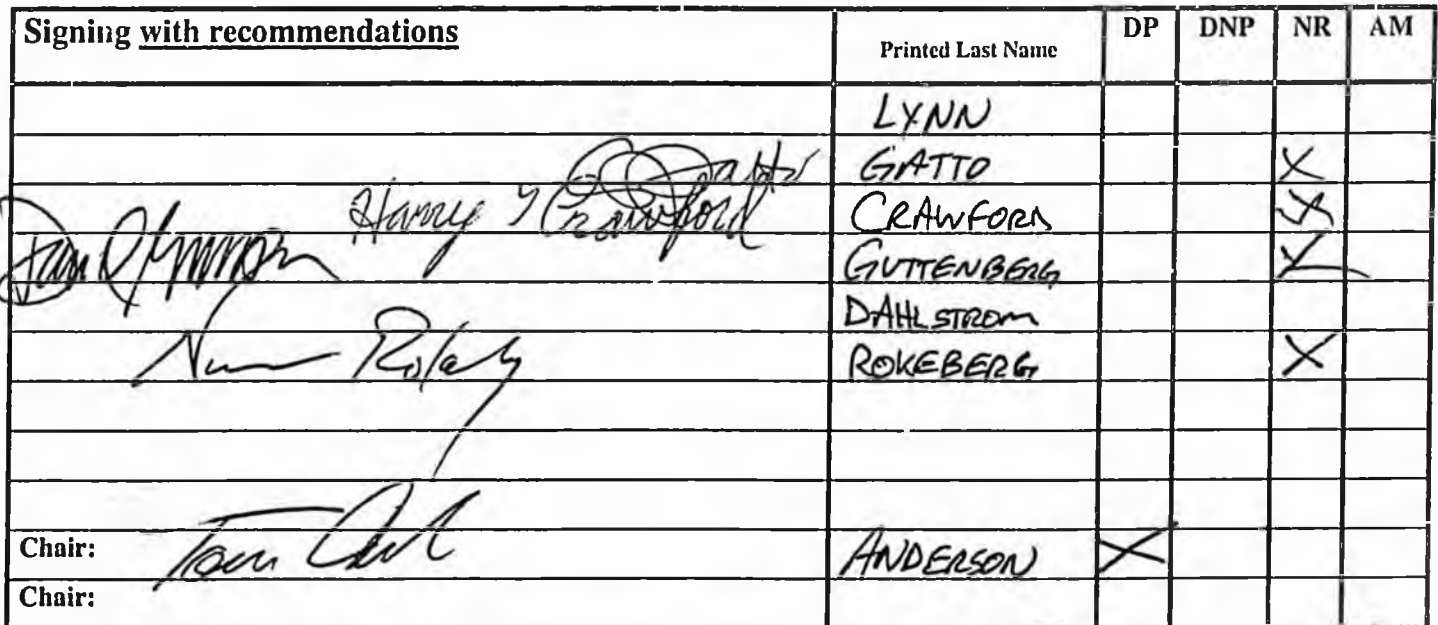 Signing with recommendations Printed Last Name DP DNP NR AM
LYNN
GATTO X
Harry Crawford CRAWFORD X
GUTTENBERG X
DAHLSTROM
ROKEBERG X
Chair: Tom ANDERSON X
Chair: